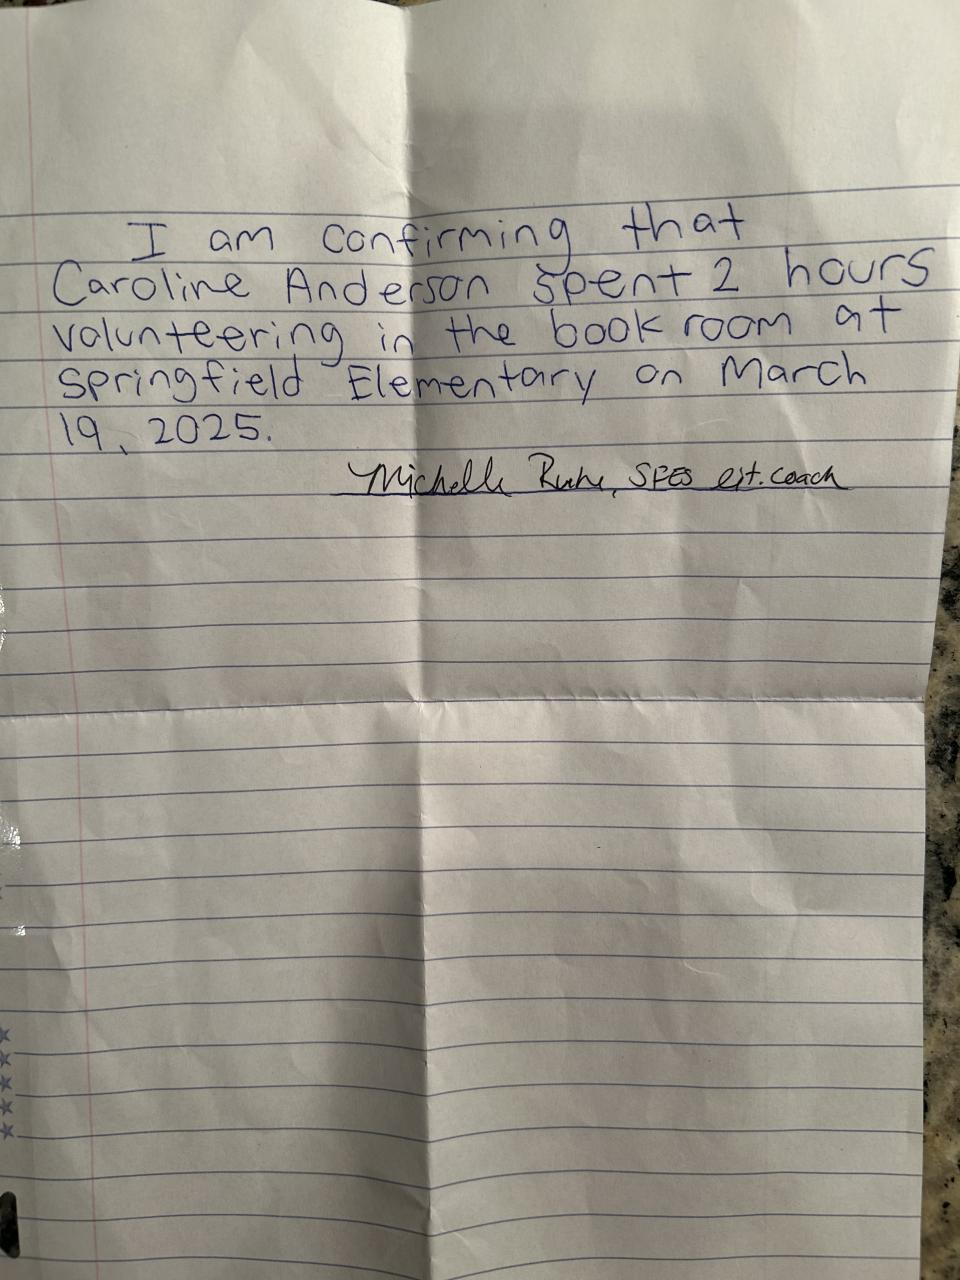 I am confirming that
Caroline Anderson spent 2 hours
volunteering in the book room at
Springfield Elementary on March
19, 2025.
Michelle SFES coach